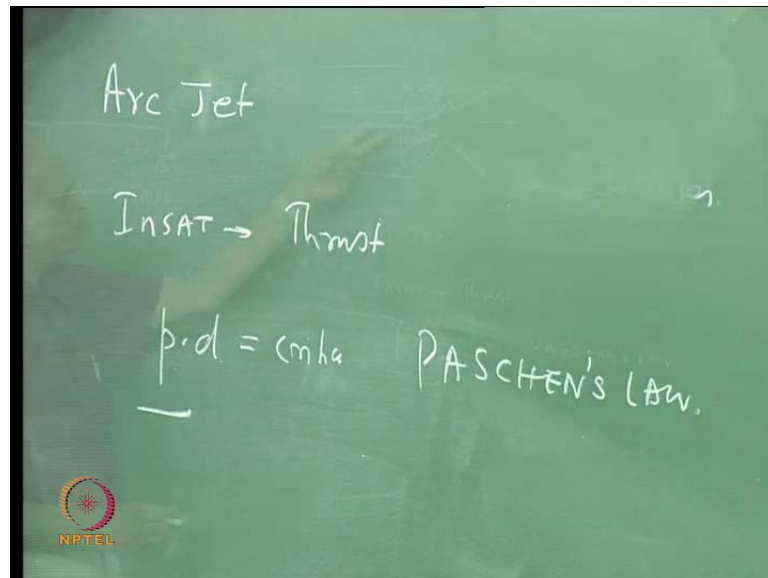 Arc Jet
INSAT → Thrust
p.d =
PASCHEN'S LAW.
NPTEL